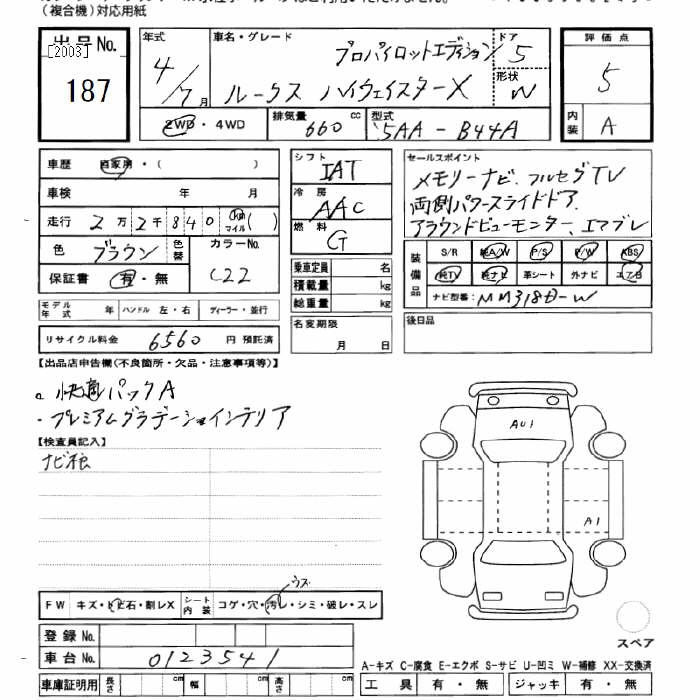 （複合機）対応用紙
出品No.
[2003]
187
年式
4/7月
車名・グレード
プロパイロットエディション
ルークス ハイウェイスターX
ドア
5
形状
W
評価点
5
内装
A
2WD・4WD
排気量 660 cc
型式 5AA-B44A
車歴 自家用・( )
車検 年 月
走行 2万2千840 km マイル( )
色 ブラウン
色替
カラーNo.
C22
保証書 有・無
モデル年式 年 ハンドル 左・右 ディーラー・並行
リサイクル料金 6560 円 預託済
シフト
IAT
冷房
AAC
燃料
G
乗車定員 名
積載量 kg
総重量 kg
名変期限
月 日
セールスポイント
メモリーナビ、フルセグTV
両側パワースライドドア、
アラウンドビューモニター、エマブレ
装備品
S/R 純A/W P/S P/W ABS
純TV 純ナビ 革シート 外ナビ エアB
ナビ型番: MM318D-W
後日品
【出品店申告欄(不良箇所・欠品・注意事項等)】
・快適パックA
・プレミアムグラデーションインテリア
【検査員記入】
AU1
A1
FW キズ・トビ石・割レX
シート内装 コゲ・穴・汚レ・シミ・破レ・スレ
ウス
登録No.
車台No. 0123541
車庫証明用 長さ cm 幅 cm 高さ cm
スペア
A-キズ C-腐食 E-エクボ S-サビ U-凹ミ W-補修 XX-交換済
工具 有・無 ジャッキ 有・無